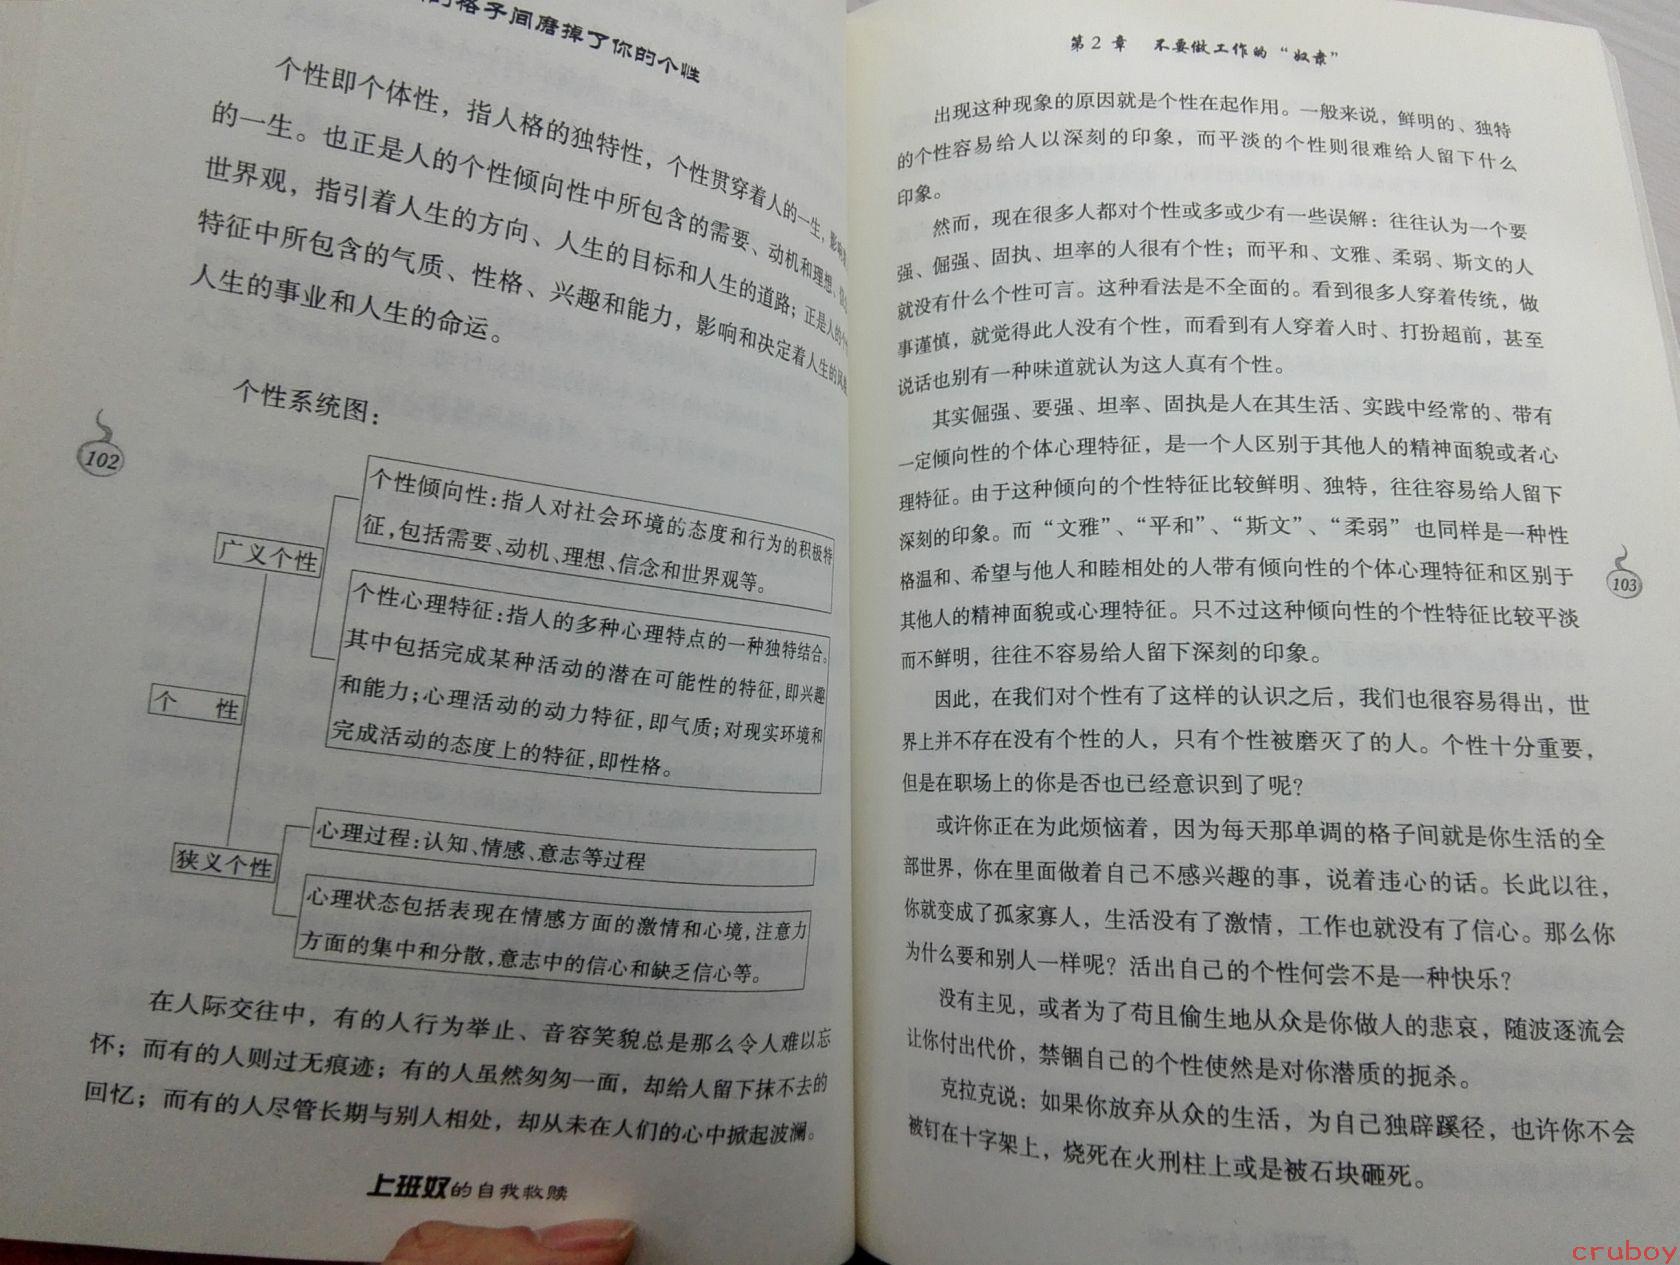 的格子间磨掉了你的个性
个性即个体性，指人格的独特性，个性贯穿着人的一生，影响着
的一生。也正是人的个性倾向性中所包含的需要、动机和理想、
世界观，指引着人生的方向、人生的目标和人生的道路；正是人的个
特征中所包含的气质、性格、兴趣和能力，影响和决定着人生的风
人生的事业和人生的命运。
个性系统图：
102
个性倾向性：指人对社会环境的态度和行为的积极特
征，包括需要、动机、理想、信念和世界观等。
广义个性
个性心理特征：指人的多种心理特点的一种独特结合。
其中包括完成某种活动的潜在可能性的特征，即兴趣
和能力；心理活动的动力特征，即气质；对现实环境和
完成活动的态度上的特征，即性格。
个 性
心理过程：认知、情感、意志等过程
狭义个性
心理状态包括表现在情感方面的激情和心境，注意力
方面的集中和分散，意志中的信心和缺乏信心等。
在人际交往中，有的人行为举止、音容笑貌总是那么令人难以忘
怀；而有的人则过无痕迹；有的人虽然匆匆一面，却给人留下抹不去的
回忆；而有的人尽管长期与别人相处，却从未在人们的心中掀起波澜。
上班奴的自我救赎
第2章 不要做工作的“奴隶”
出现这种现象的原因就是个性在起作用。一般来说，鲜明的、独特
的个性容易给人以深刻的印象，而平淡的个性则很难给人留下什么
印象。
然而，现在很多人都对个性或多或少有一些误解：往往认为一个要
强、倔强、固执、坦率的人很有个性；而平和、文雅、柔弱、斯文的人
就没有什么个性可言。这种看法是不全面的。看到很多人穿着传统，做
事谨慎，就觉得此人没有个性，而看到有人穿着入时、打扮超前，甚至
说话也别有一种味道就认为这人真有个性。
其实倔强、要强、坦率、固执是人在其生活、实践中经常的、带有
一定倾向性的个体心理特征，是一个人区别于其他人的精神面貌或者心
理特征。由于这种倾向的个性特征比较鲜明、独特，往往容易给人留下
深刻的印象。而“文雅”、“平和”、“斯文”、“柔弱”也同样是一种性
格温和、希望与他人和睦相处的人带有倾向性的个体心理特征和区别于
其他人的精神面貌或心理特征。只不过这种倾向性的个性特征比较平淡
而不鲜明，往往不容易给人留下深刻的印象。
103
因此，在我们对个性有了这样的认识之后，我们也很容易得出，世
界上并不存在没有个性的人，只有个性被磨灭了的人。个性十分重要，
但是在职场上的你是否也已经意识到了呢？
或许你正在为此烦恼着，因为每天那单调的格子间就是你生活的全
部世界，你在里面做着自己不感兴趣的事，说着违心的话。长此以往，
你就变成了孤家寡人，生活没有了激情，工作也就没有了信心。那么你
为什么要和别人一样呢？活出自己的个性何尝不是一种快乐？
没有主见，或者为了苟且偷生地从众是你做人的悲哀，随波逐流会
让你付出代价，禁锢自己的个性使然是对你潜质的扼杀。
克拉克说：如果你放弃从众的生活，为自己独辟蹊径，也许你不会
被钉在十字架上，烧死在火刑柱上或是被石块砸死。
cruboy